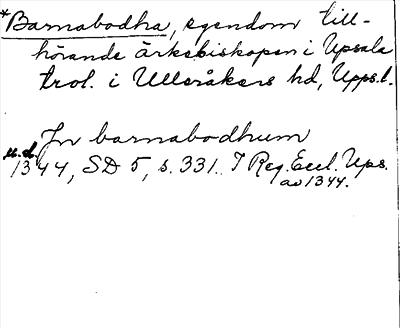 *Barnabodha, egendom till-
hörande ärkebiskopen i Upsala
trol. i Ulleråkers hd, Upps.l.
In barnabodhum
u.d. 1344, SD 5, s. 331. I Reg. Eccl. Ups.
av 1344.